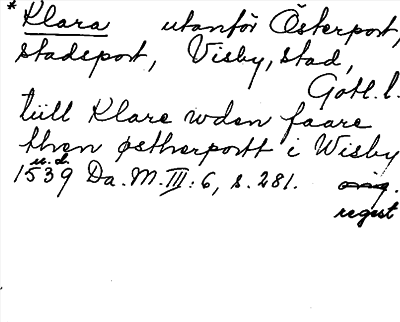 * Klara utanför Österport,
stadsport, Visby, stad,
Gotl. l.
tüll Klare wden faare
then østherportt i Wisby
u. d.
1539 Da. M. III: 6, s. 281. orig.
regest